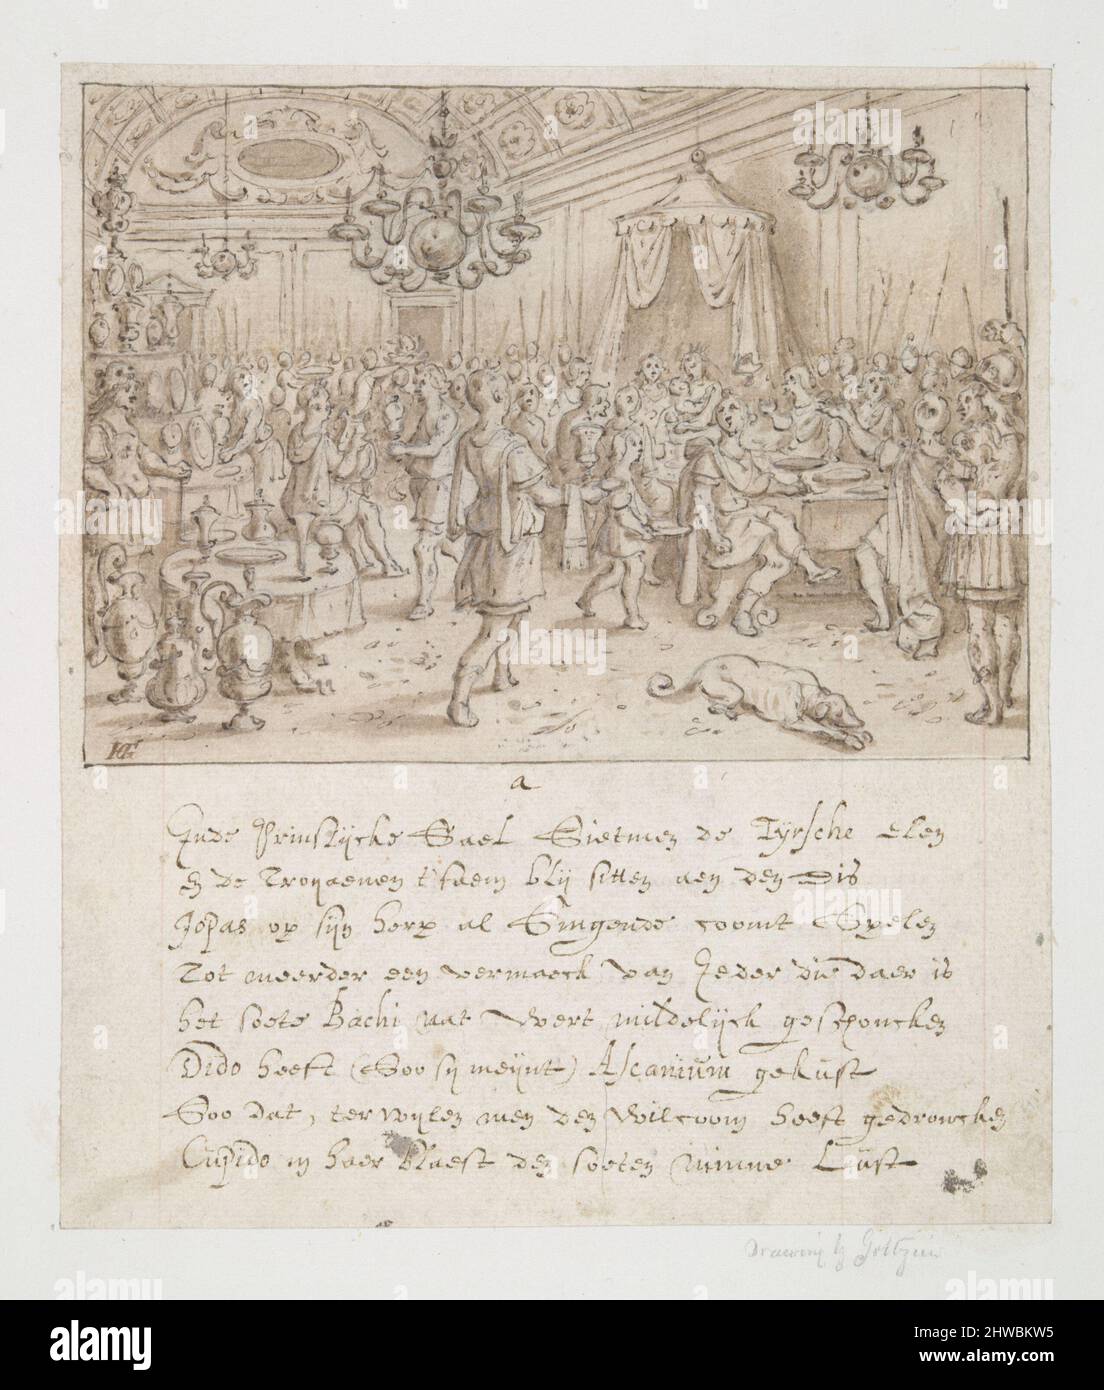 HG
a
Inde Prinslijcke Sael Sietmen de Tyrsche elen
En de Troyaenen t'saem blij sitten aen den Dis
Jopas op sijn herp al Singende coomt Spelen
Tot meerder een vermaeck van Jeder die daer is
het soete Bachi nat wert mildelijck geschoncken
Dido heeft (Soo sij meijnt) Ascanium gekust
Soo Dat, terwijlen men den willcoom heeft gedroncken
Cupido in haer blaest den soeten minne Lust
Drawing by Goltzius
alamy
Image ID: 2HWBKW5
www.alamy.com